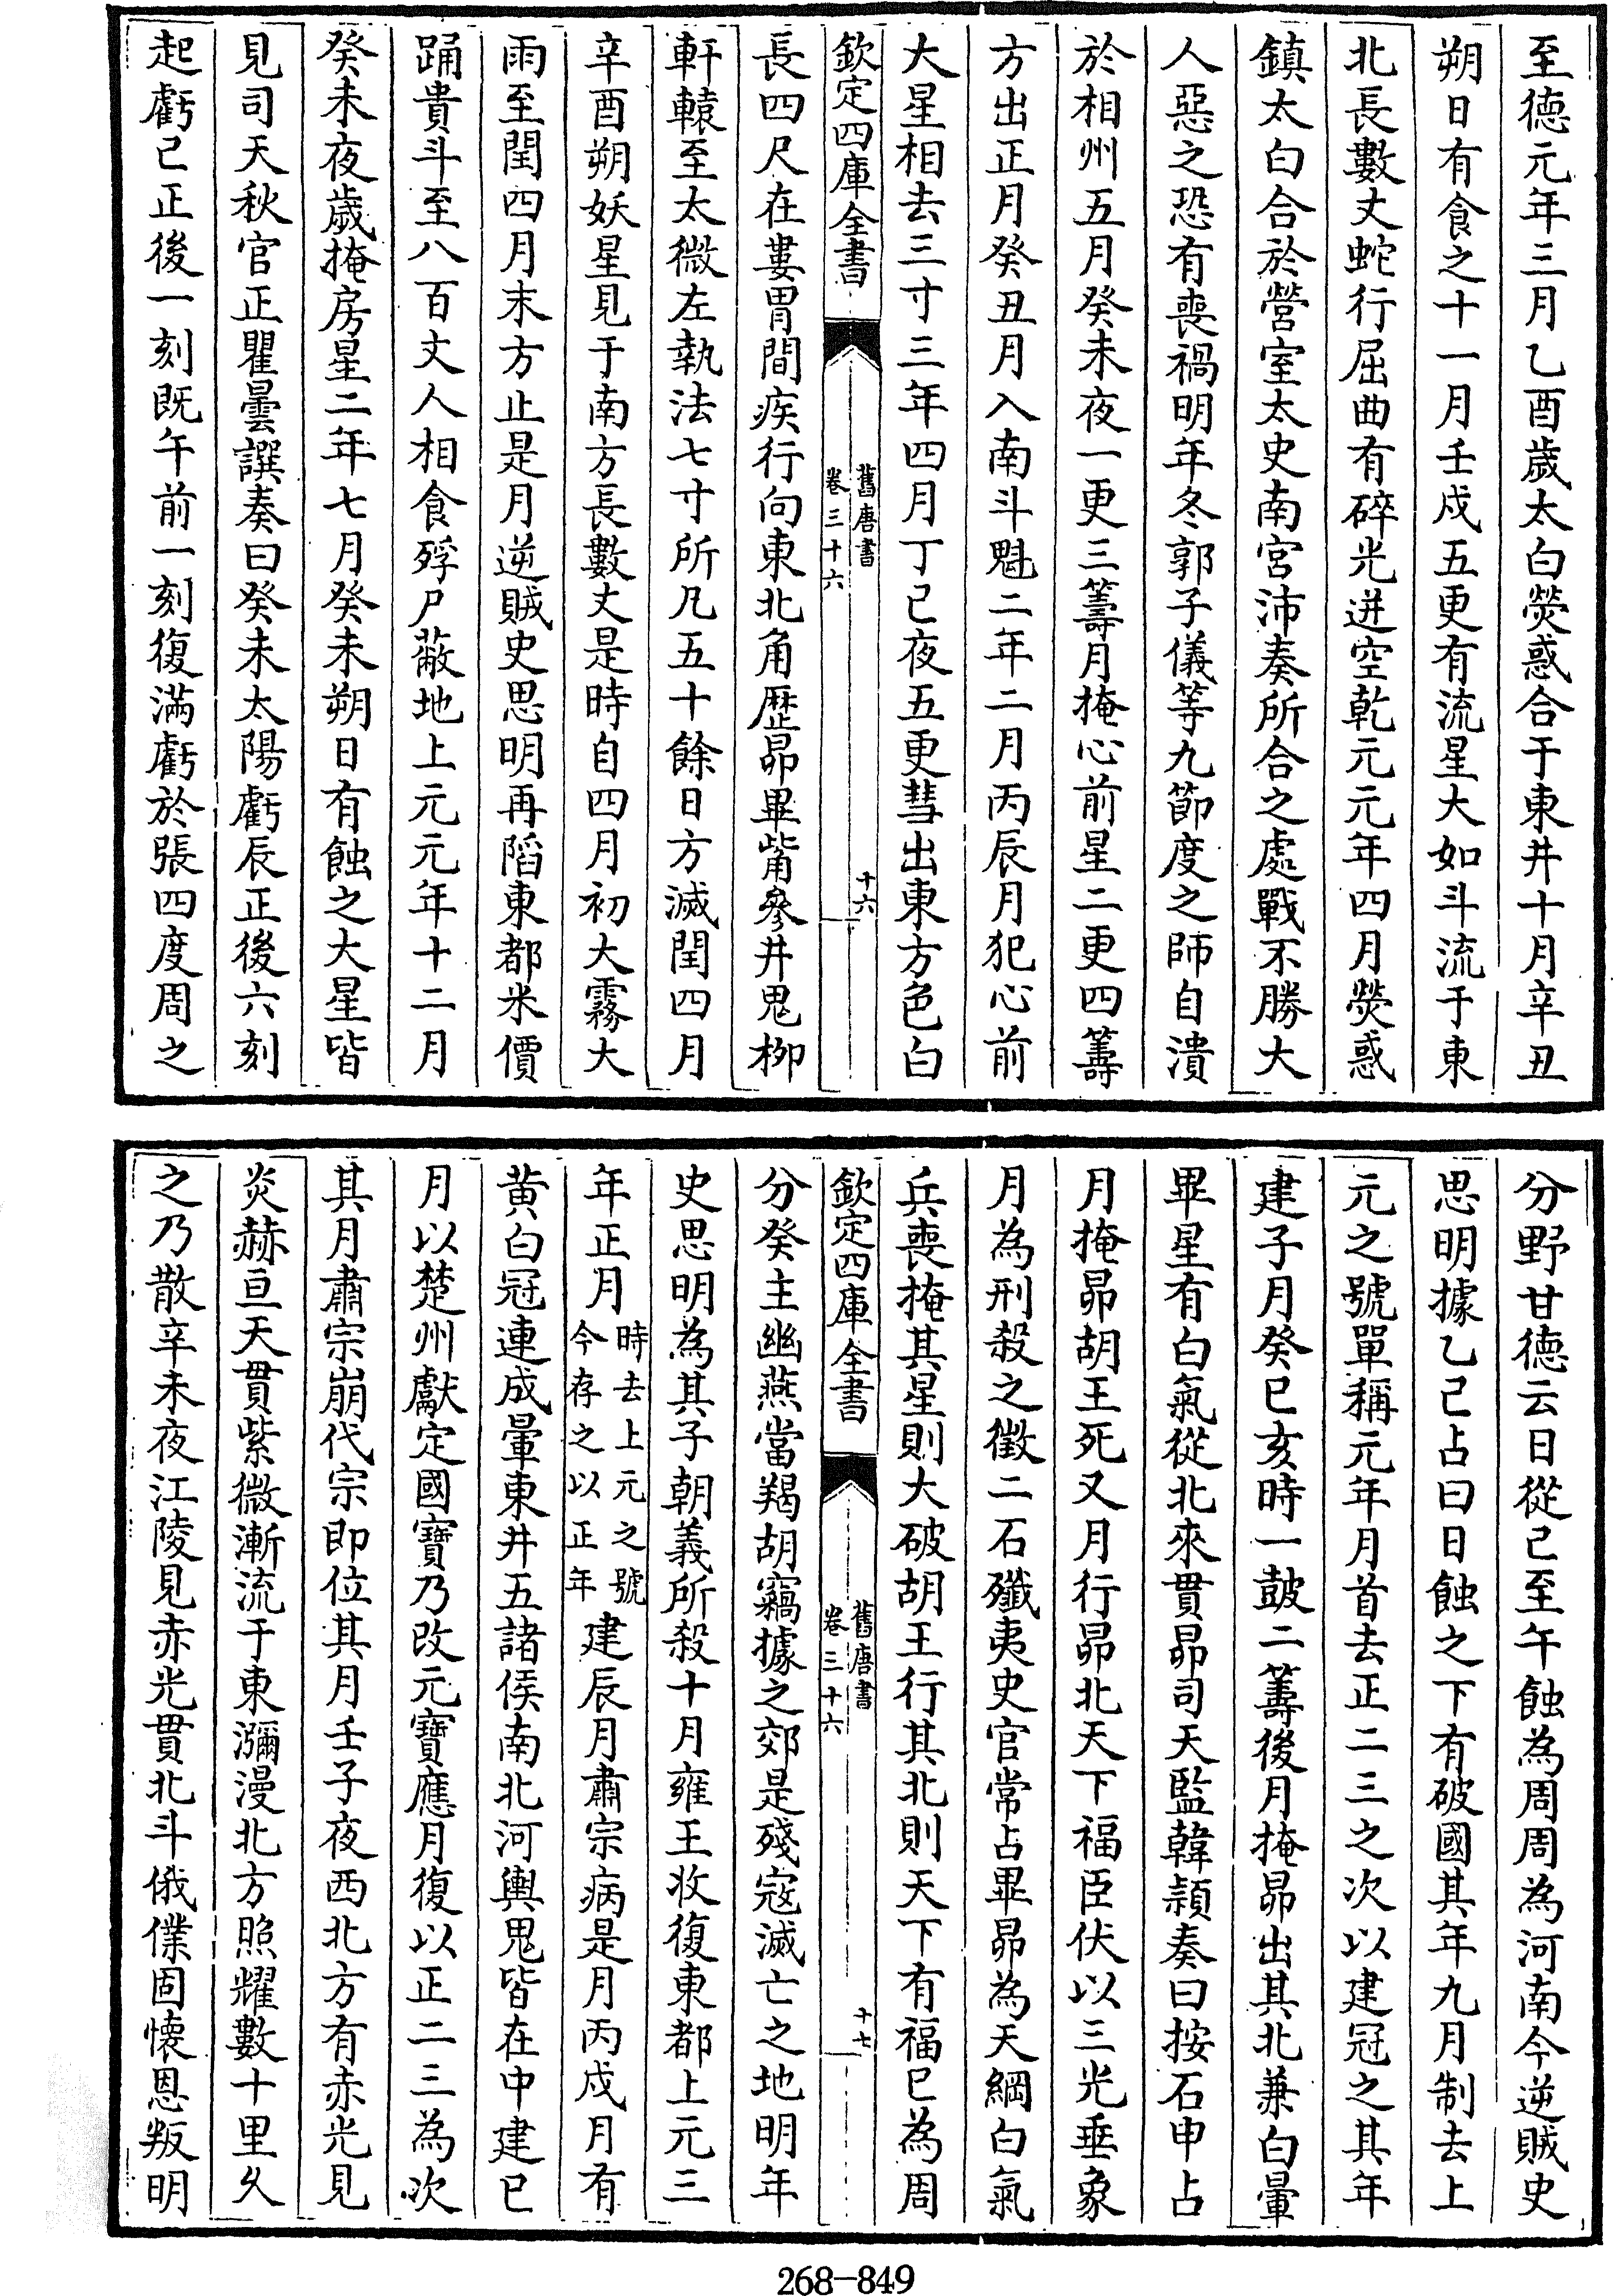 至德元年三月乙酉歲太白熒惑合于東井十月辛丑
朔日有食之十一月壬戍五更有流星大如斗流于東
北長數丈蛇行屈曲有碎光迸空乾元元年四月熒惑
鎮太白合於營室太史南宮沛奏所合之處戰不勝大
人惡之恐有喪禍明年冬郭子儀等九節度之師自潰
於相州五月癸未夜一更三籌月掩心前星二更四籌
方出正月癸丑月入南斗魁二年二月丙辰月犯心前
大星相去三寸三年四月丁巳夜五更彗出東方色白
欽定四庫全書
舊唐書
卷三十六
十六
長四尺在婁胃間疾行向東北角歷昴畢觜參井鬼栁
軒轅至太微左執法七寸所凡五十餘日方滅閏四月
辛酉朔妖星見于南方長數丈是時自四月初大霧大
雨至閏四月末方止是月逆賊史思明再陷東都米價
踊貴斗至八百文人相食殍尸蔽地上元元年十二月
癸未夜歲掩房星二年七月癸未朔日有蝕之大星皆
見司天秋官正瞿曇譔奏曰癸未太陽虧辰正後六刻
起虧巳正後一刻既午前一刻復滿虧於張四度周之
分野甘德云日從巳至午蝕為周周為河南今逆賊史
思明據乙巳占曰日蝕之下有破國其年九月制去上
元之號單稱元年月首去正二三之次以建冠之其年
建子月癸巳亥時一鼓二籌後月掩昴出其北兼白暈
畢星有白氣從北來貫昴司天監韓頴奏曰按石申占
月掩昴胡王死又月行昴北天下福臣伏以三光垂象
月為刑殺之徵二石殲夷史官常占畢昴為天綱白氣
兵喪掩其星則大破胡王行其北則天下有福巳為周
欽定四庫全書
舊唐書
卷三十六
十七
分癸主幽燕當羯胡竊據之郊是殘寇滅亡之地明年
史思明為其子朝義所殺十月雍王收復東都上元三
年正月時去上元之號今存之以正年建辰月肅宗病是月丙戍月有
黄白冠連成暈東井五諸侯南北河輿鬼皆在中建巳
月以楚州獻定國寶乃改元寶應月復以正二三為次
其月肅宗崩代宗即位其月壬子夜西北方有赤光見
炎赫亘天貫紫微漸流于東瀰漫北方照耀數十里久
之乃散辛未夜江陵見赤光貫北斗俄僕固懐恩叛明
268-849